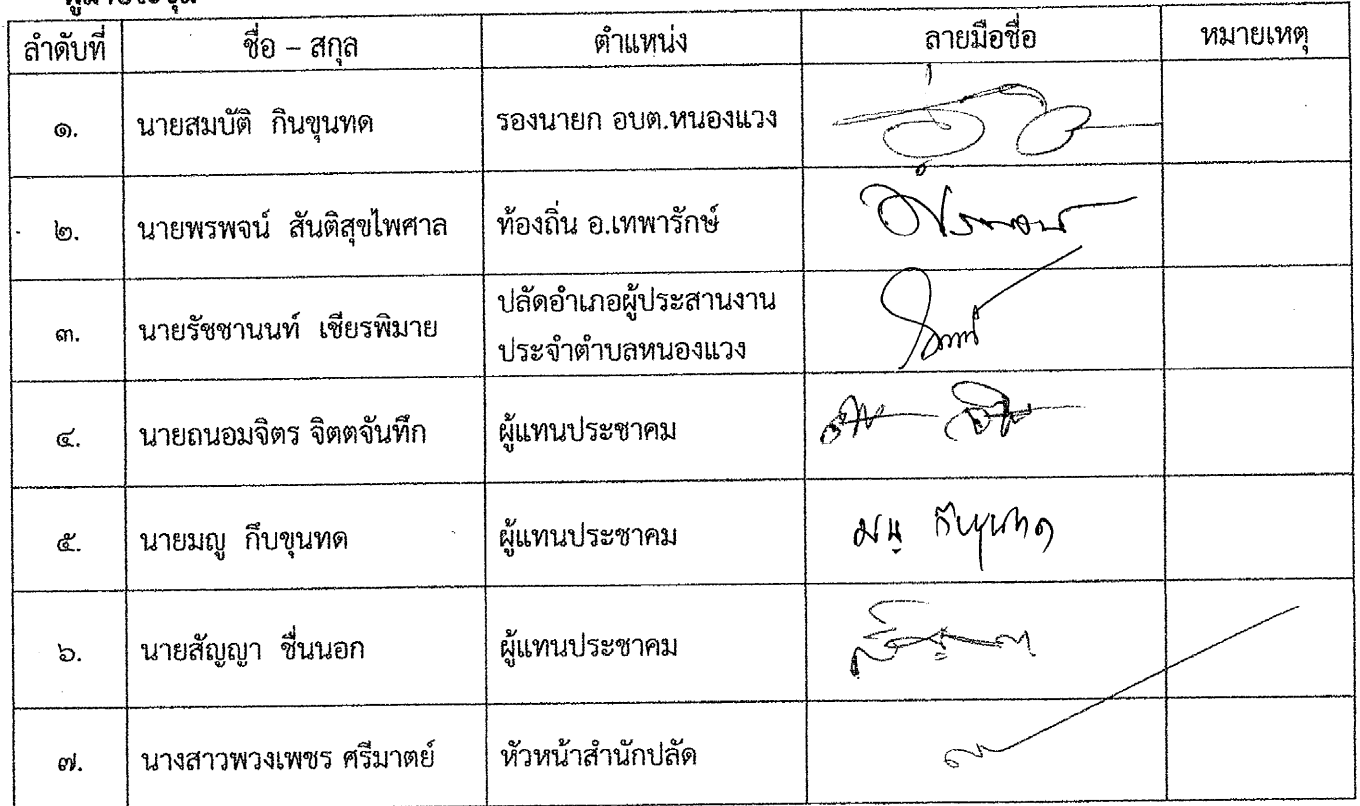 ลำดับที่ ชื่อ – สกุล ตำแหน่ง ลายมือชื่อ หมายเหตุ
๑. นายสมบัติ กินขุนทด รองนายก อบต.หนองแวง
๒. นายพรพจน์ สันติสุขไพศาล ท้องถิ่น อ.เทพารักษ์
๓. นายรัชชานนท์ เชียรพิมาย ปลัดอำเภอผู้ประสานงาน
ประจำตำบลหนองแวง
๔. นายถนอมจิตร จิตตจันทึก ผู้แทนประชาคม
๕. นายมญู กึบขุนทด ผู้แทนประชาคม
๖. นายสัญญา ชื่นนอก ผู้แทนประชาคม
๗. นางสาวพวงเพชร ศรีมาตย์ หัวหน้าสำนักปลัด